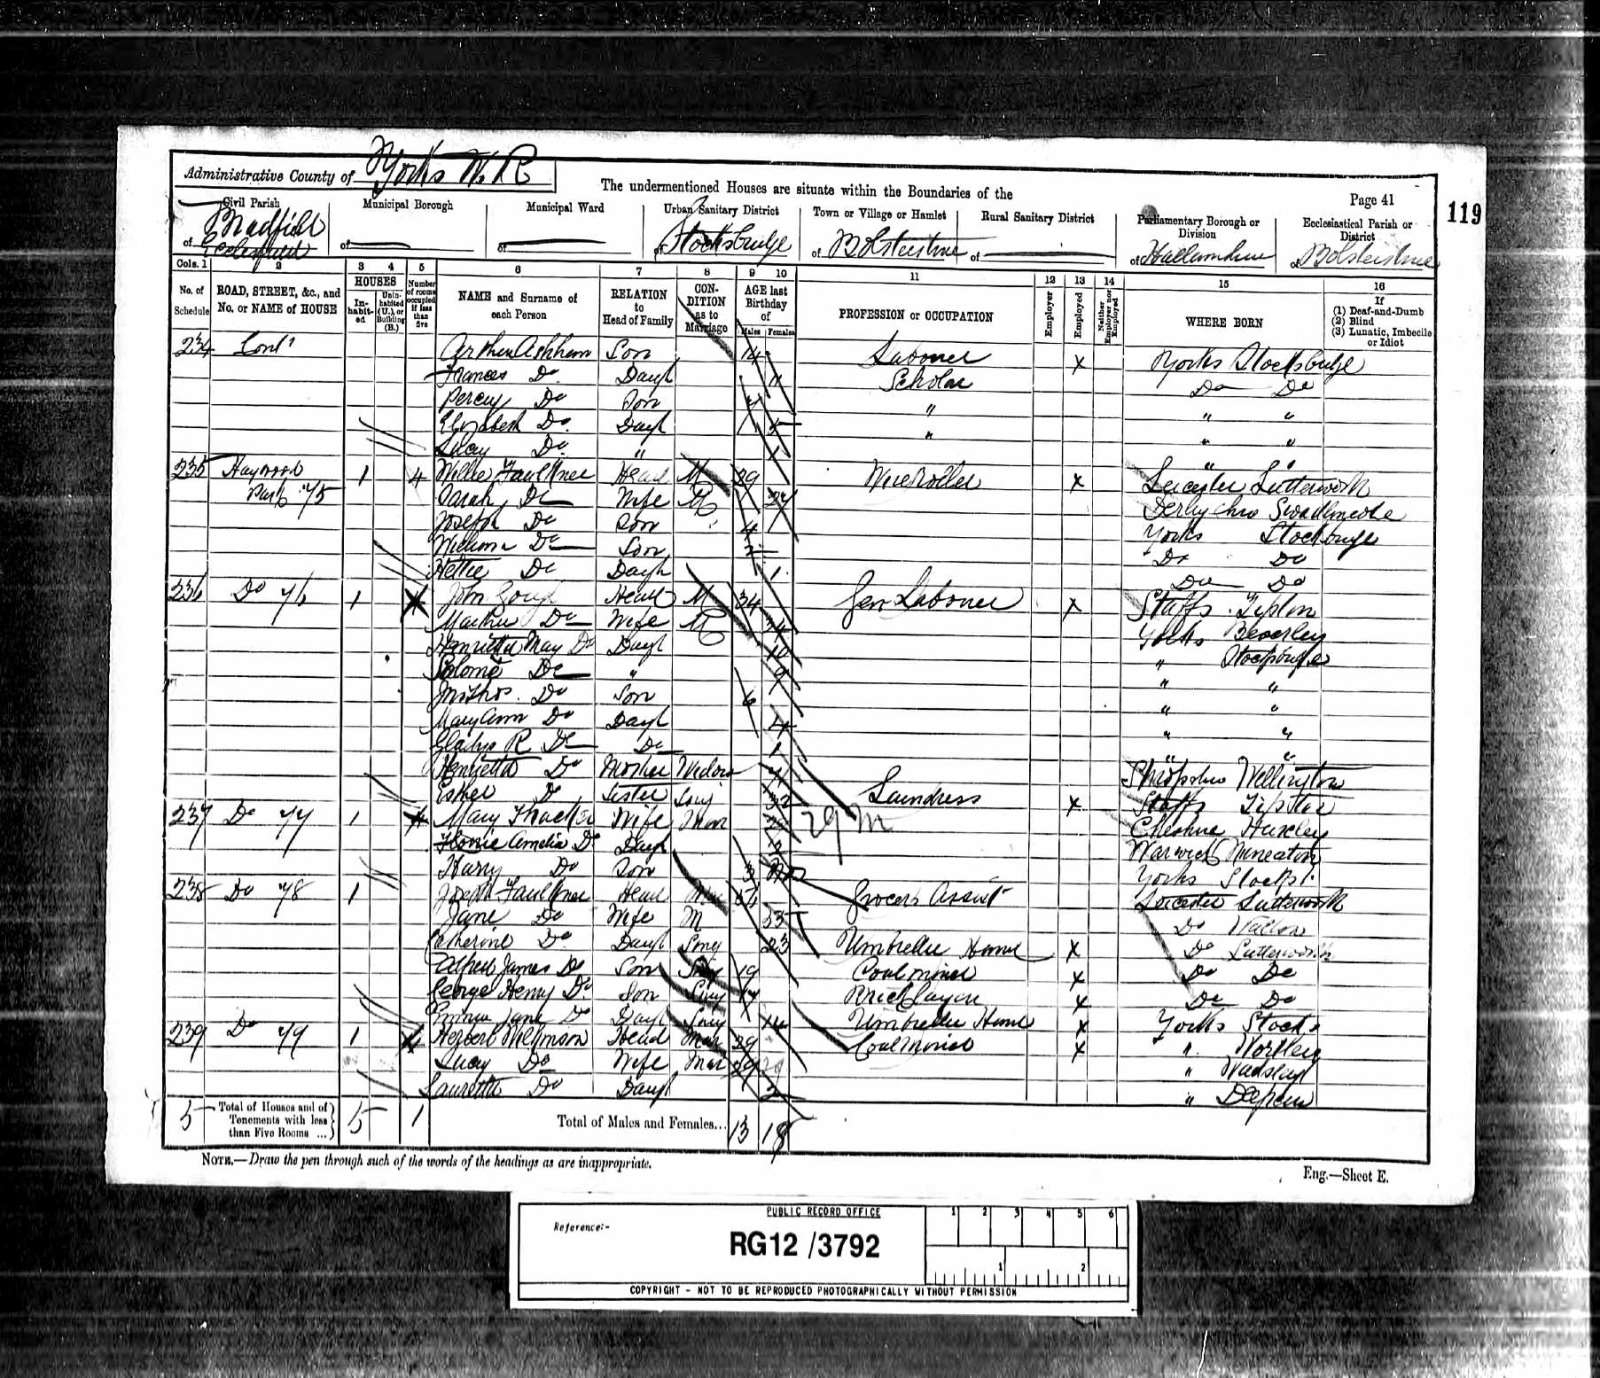 Administrative County of Yorks W. R
The undermentioned Houses are situate within the Boundaries of the
Page 41
119
Civil Parish
Municipal Borough
Municipal Ward
Urban Sanitary District
Town or Village or Hamlet
Rural Sanitary District
Parliamentary Borough or Division
Ecclesiastical Parish or District
of Bradfield Ecclesfield
of
of
of Stocksbridge
of Bolsterstone
of
of Hallamshire
of Bolsterstone
Cols. 1 2 3 4 5 6 7 8 9 10 11 12 13 14 15 16
No. of Schedule
ROAD, STREET, &c., and No. or NAME of HOUSE
HOUSES
In-habit-ed
Unin-habited (U.), or Building (B.)
Number of rooms occupied if less than five
NAME and Surname of each Person
RELATION to Head of Family
CON-DITION as to Marriage
AGE last Birthday of
Males Females
PROFESSION or OCCUPATION
Employer
Employed
Neither Employer nor Employed
WHERE BORN
If
(1) Deaf-and-Dumb
(2) Blind
(3) Lunatic, Imbecile or Idiot
234 Cont Arthur Son 14 Labourer x Yorks Stocksbridge
Frances Do Daugr Scholar Do Do
Percy Do Son " " "
Elizabeth Do Daugr " " "
Lucy Do " " "
235 Haywood Park 75 1 4 Willie Faulkner Head M 29 Wire Roller x Leicester Lutterworth
Sarah Do Wife M Derbyshire Swadlincote
Joseph Do Son 4 Yorks Stocksbridge
William Do Son 2 Do Do
Hettie Do Daugr 1 Do Do
236 Do 76 1 John Head M 34 Gen Labourer x Staffs Tipton
Do Wife M 34 Yorks Beverley
Henrietta May Do Daugr 10 " Stocksbridge
Salome Do " 9 " "
Do Son 6 " "
Mary Ann Do Daugr 4 " "
Gladys R Do Do 1 " "
Henrietta Do Mother Widow Shropshire Wellington
Esther Do Sister Sing 32 Laundress x Staffs Tipton
237 Do 77 1 Mary Thacker Wife Mar 29 M Cheshire
Amelia Do Daugr Warwick Nuneaton
Harry Do Son 3 Yorks Stocks
238 Do 78 1 Joseph Faulkner Head Mar Grocers Assist Leicester Lutterworth
Jane Do Wife M 53 Do Walton
Catherine Do Daugr Sing 23 Umbrella Hand x Do Lutterworth
Alfred James Do Son Sing 19 Coal miner x Do Do
George Henry Do Son Sing 17 Bricklayer x Do Do
Emma Jane Do Daugr Sing 14 Umbrella Hand x Yorks Stocks
239 Do 79 1 Herbert Wilkinson Head Mar 29 Coal Miner x " Wortley
Lucy Do Wife Mar 29 " Wadsley
Lauretta Do Daugr 2 " Deepcar
5 Total of Houses and of Tenements with less than Five Rooms ... 5 1 Total of Males and Females... 13 18
NOTE.—Draw the pen through such of the words of the headings as are inappropriate.
Eng.—Sheet E.
PUBLIC RECORD OFFICE
Reference:-
RG12 /3792
1 2 3 4 5 6
1 2
COPYRIGHT - NOT TO BE REPRODUCED PHOTOGRAPHICALLY WITHOUT PERMISSION